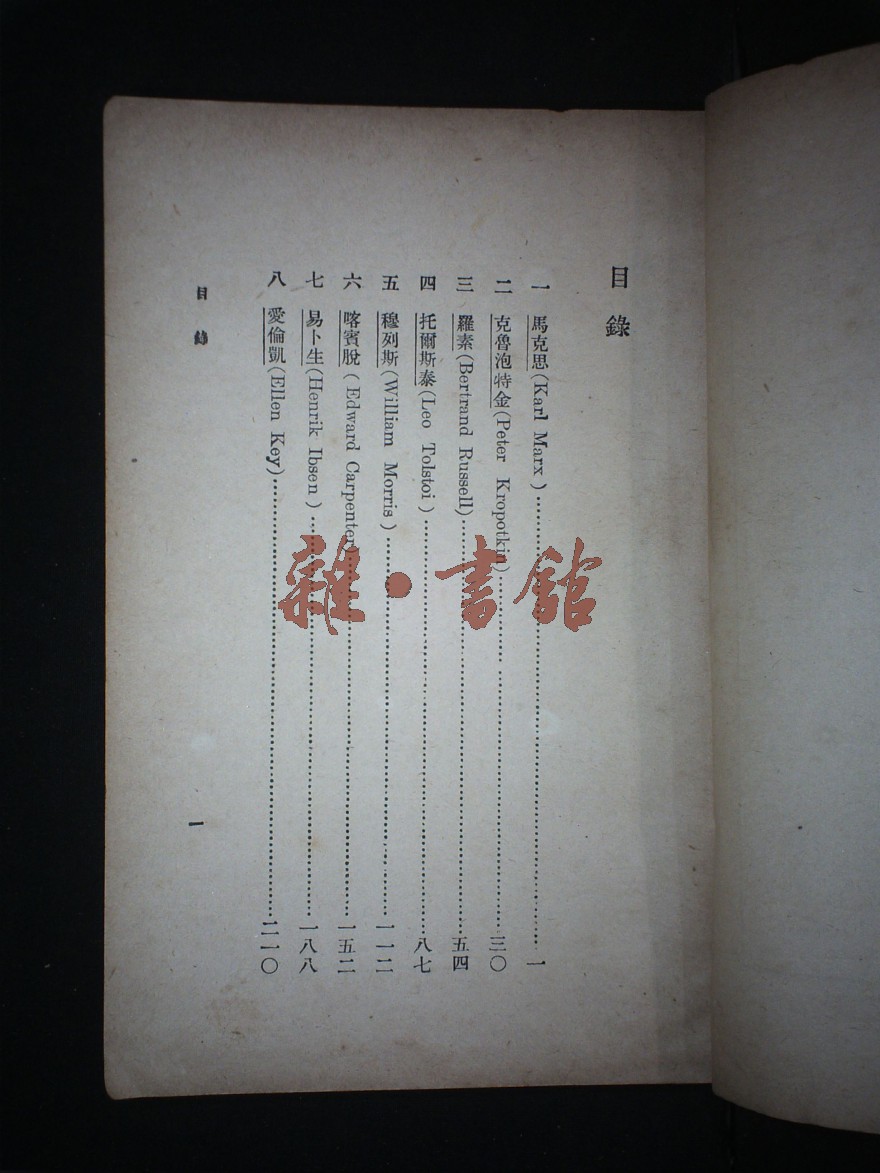 目錄
一 馬克思(Karl Marx)……一
二 克魯泡特金(Peter Kropotkin)……三〇
三 羅素(Bertrand Russell)……五四
四 托爾斯泰(Leo Tolstoi)……八七
五 穆列斯(William Morris)……一一二
六 喀賓脫(Edward Carpenter)……一五二
七 易卜生(Henrik Ibsen)……一八八
八 愛倫凱(Ellen Key)……二一〇
目錄 一
雜·書館